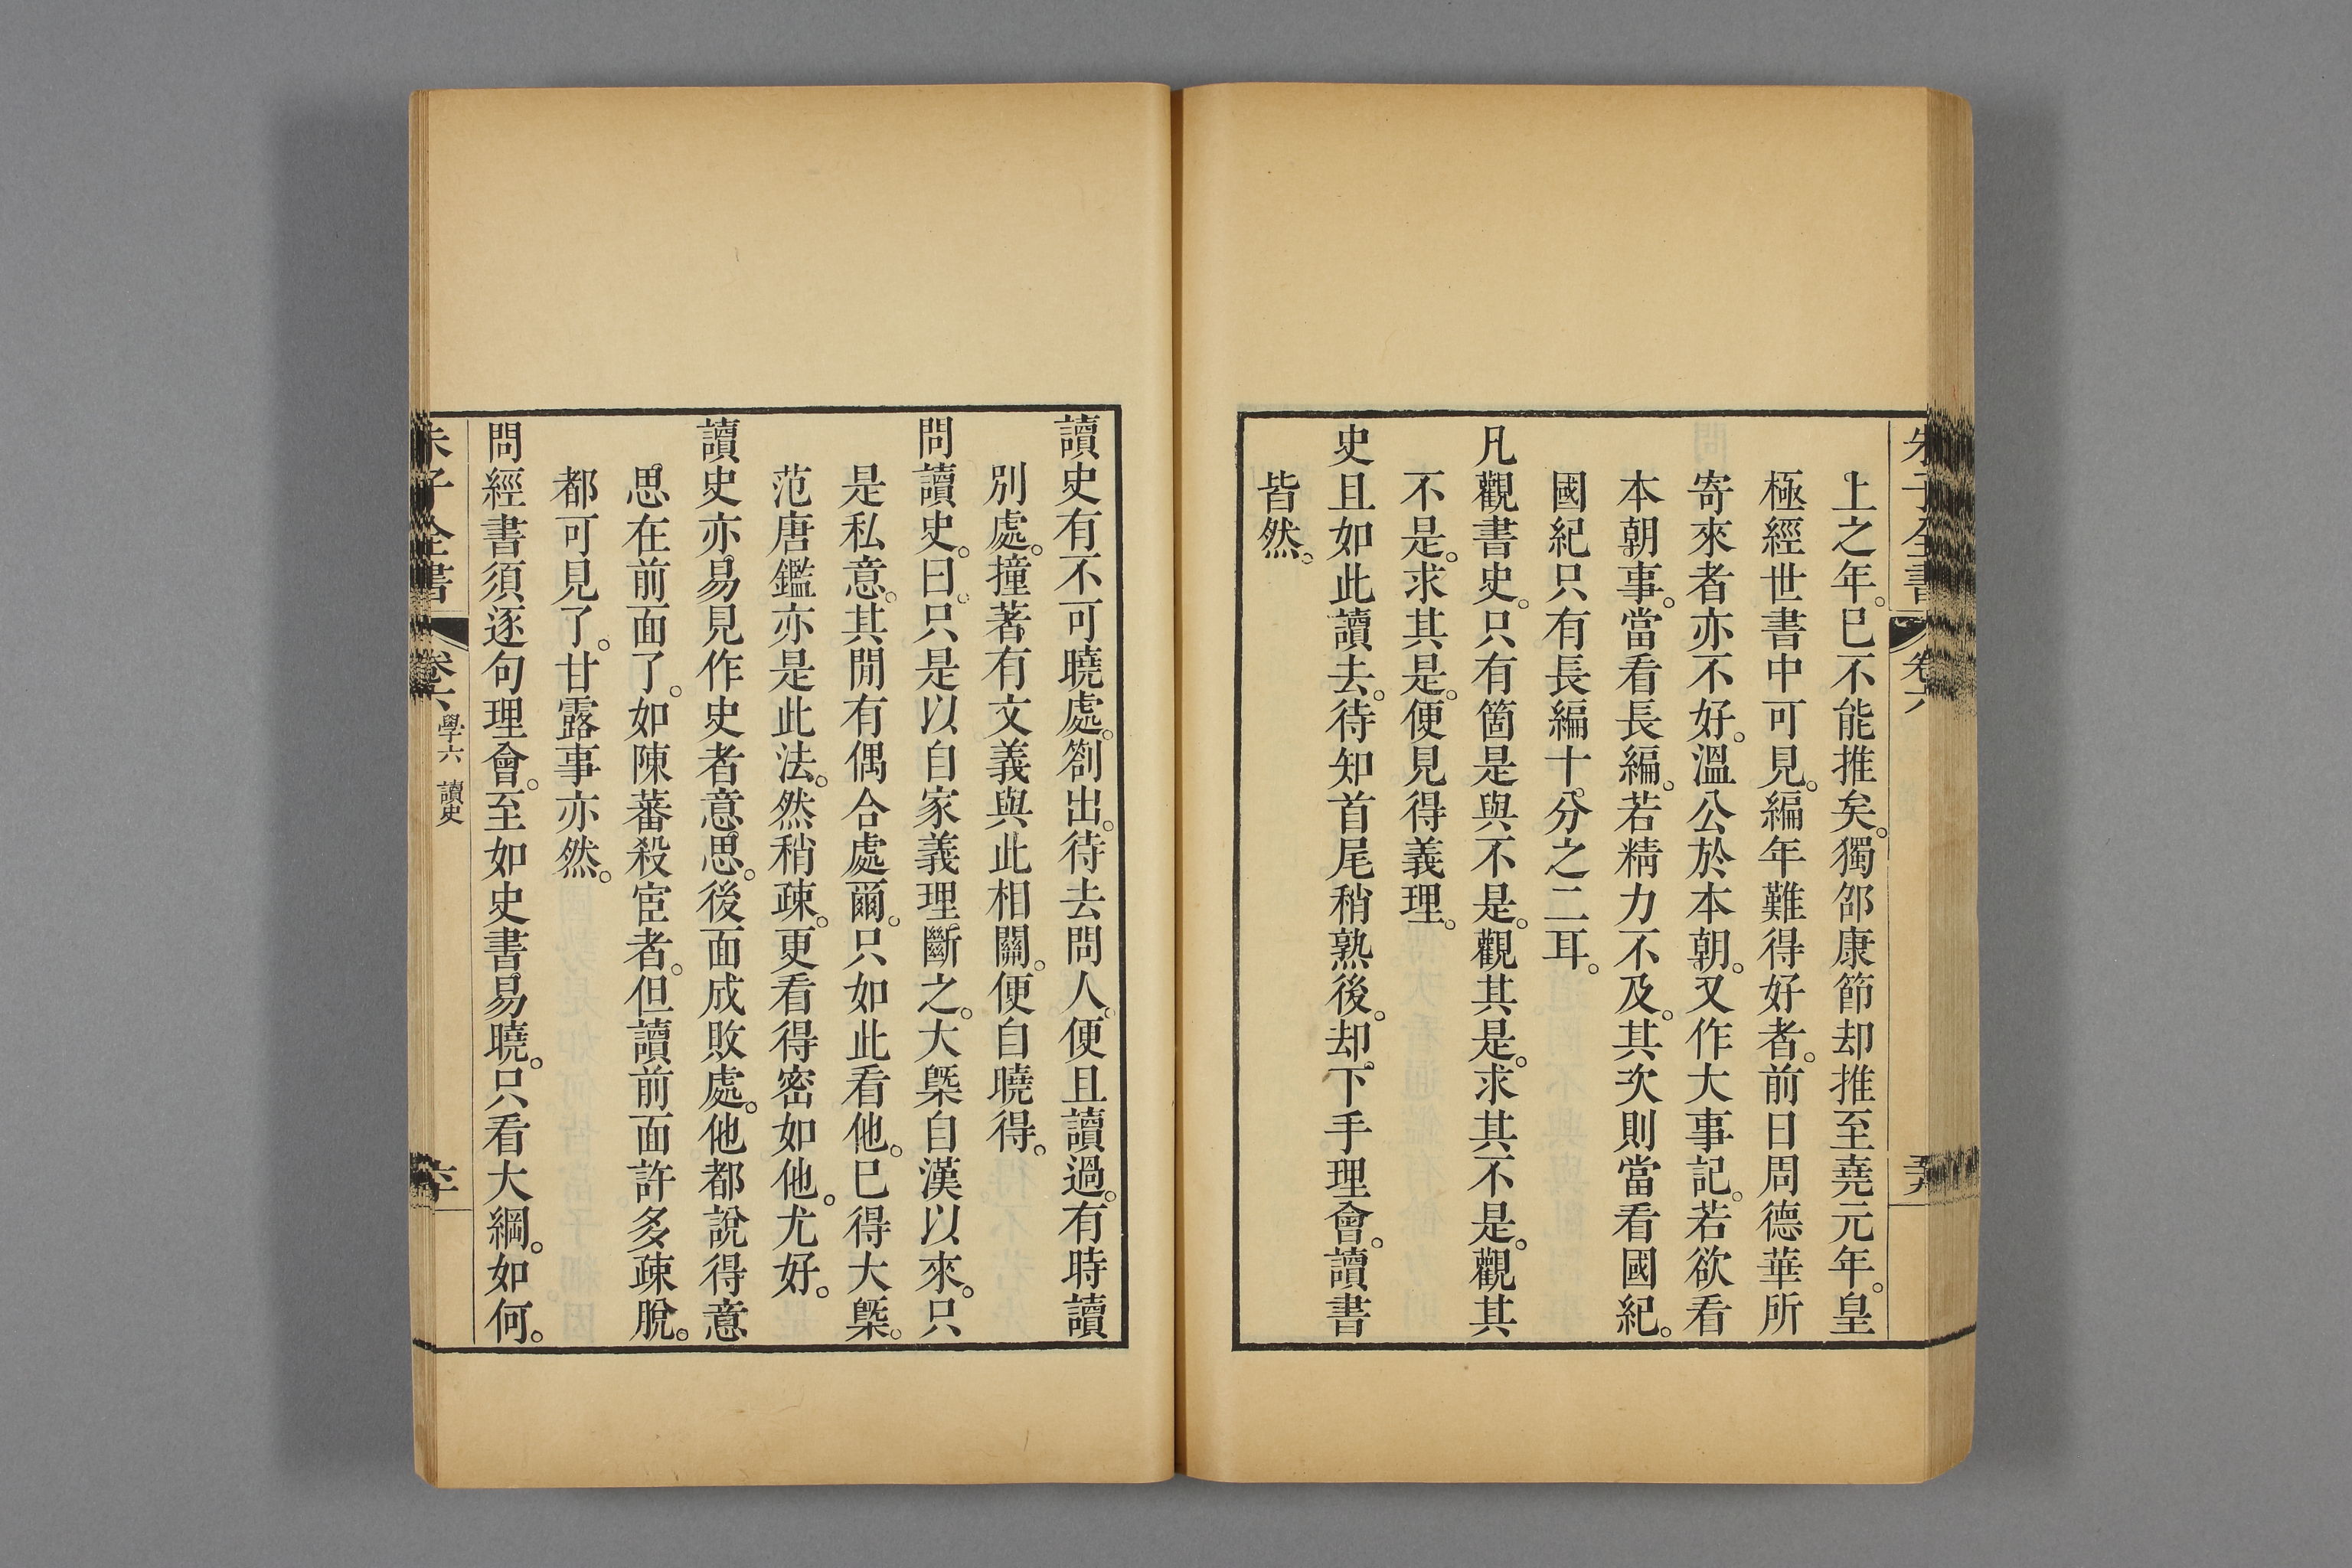 朱子全書 卷六
上之年。已不能推矣。獨邵康節却推至堯元年。皇
極經世書中可見。編年難得好者。前日周德華所
寄來者亦不好。溫公於本朝。又作大事記。若欲看
本朝事。當看長編。若精力不及。其次則當看國紀。
國紀只有長編十分之二耳。
凡觀書史。只有箇是與不是。觀其是。求其不是。觀其
不是。求其是。便見得義理。
史且如此讀去。待知首尾稍熟後。却下手理會。讀書
皆然。
讀史有不可曉處。劄出。待去問人。便且讀過。有時讀
別處。撞著有文義與此相關。便自曉得。
問讀史。曰。只是以自家義理斷之。大槩自漢以來。只
是私意。其閒有偶合處爾。只如此看他。已得大槩。
范唐鑑亦是此法。然稍疎。更看得密如他。尤好。
讀史亦易見作史者意思。後面成敗處。他都說得意
思在前面了。如陳蕃殺宦者。但讀前面許多疎脫。
都可見了。甘露事亦然。
問經書須逐句理會。至如史書易曉。只看大綱。如何。
朱子全書 卷六 學六 讀史